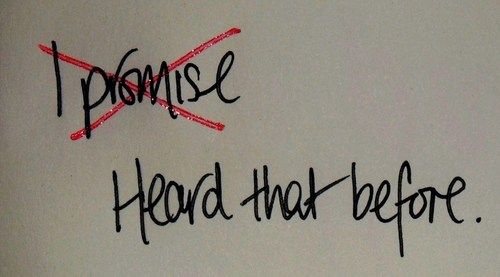 I promise
Heard that before.